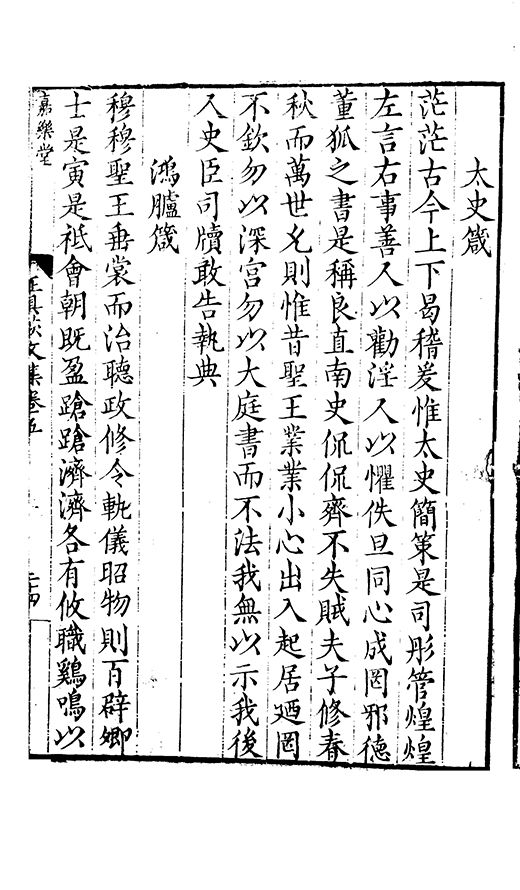 太史箴
茫茫古今上下曷稽爰惟太史簡策是司彤管煌煌
左言右事善人以勸淫人以懼佚旦同心成罔邪德
董狐之書是稱良直南史侃侃齊不失賊夫子修春
秋而萬世允則惟昔聖王業業小心出入起居迺罔
不欽勿以深宮勿以大庭書而不法我無以示我後
人史臣司牘敢告執典
鴻臚箴
穆穆聖王垂裳而治聽政修令軌儀昭物則百辟卿
士是寅是祗會朝既盈蹌蹌濟濟各有攸職鷄鳴以
嘉樂堂
文集卷五
二十四